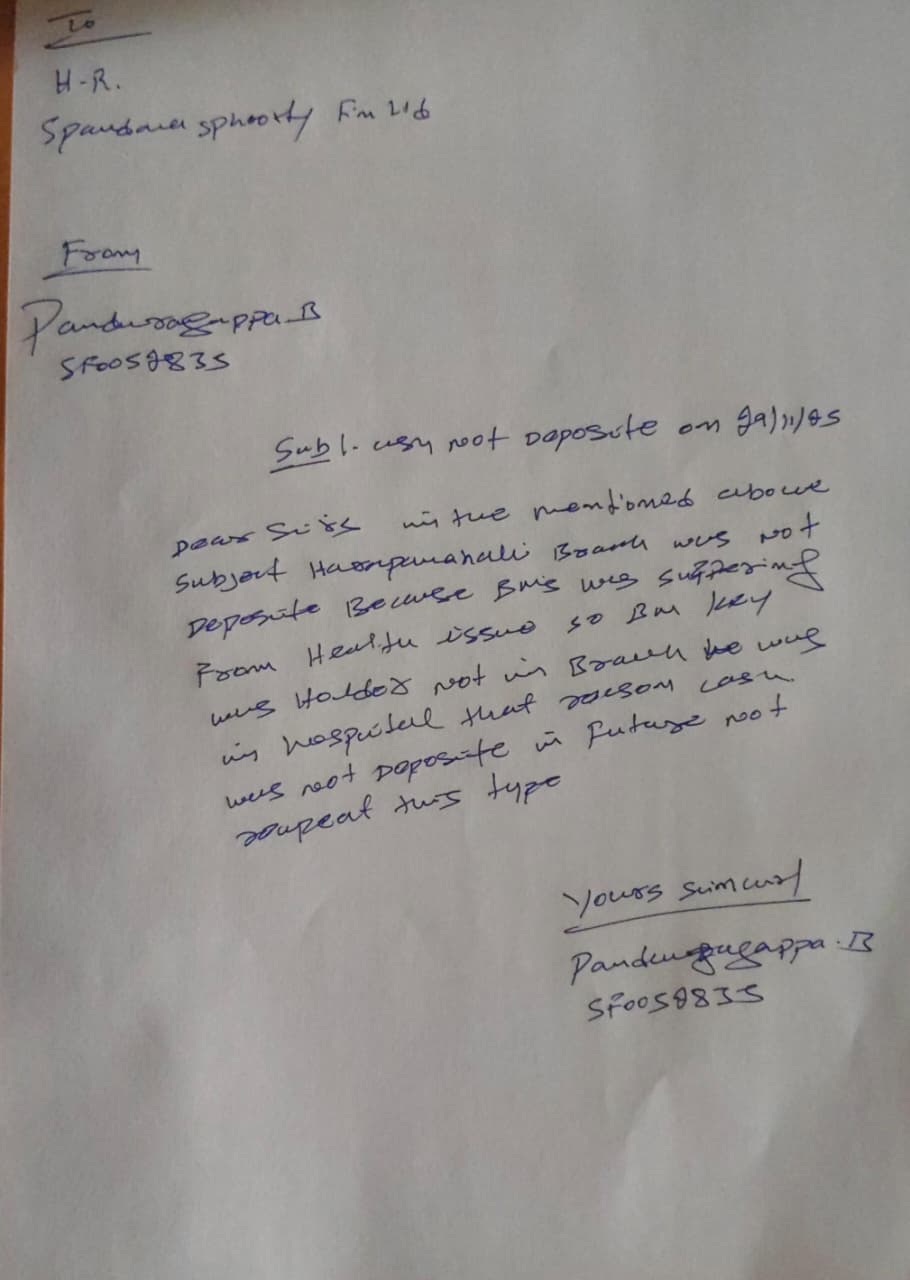 To
H-R.
Spandana sphoorty Fin Ltd
From
Panduragappa B
SF0052835
Sub:- cash not Deposite on 29/11/25
Dear Sirs in the mentioned above
Subject Harapanahali Branch was not
Deposite Because Bm's was suffering
From Health issue so Bm key
was Holder not in Branch he was
in hospital that reason cash
was not Deposite in future not
reapeat this type
Yours
Panduragappa.B
SF0052835